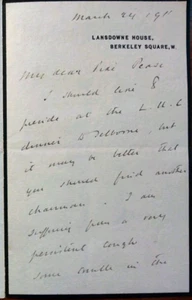 March 24 191
LANSDOWNE HOUSE,
BERKELEY SQUARE, W.
My dear Pease
I should like to
preside at the
dinner to but
it may be better that
you should find another
chairman. I am
suffering from a very
persistent cough,
some trouble in the